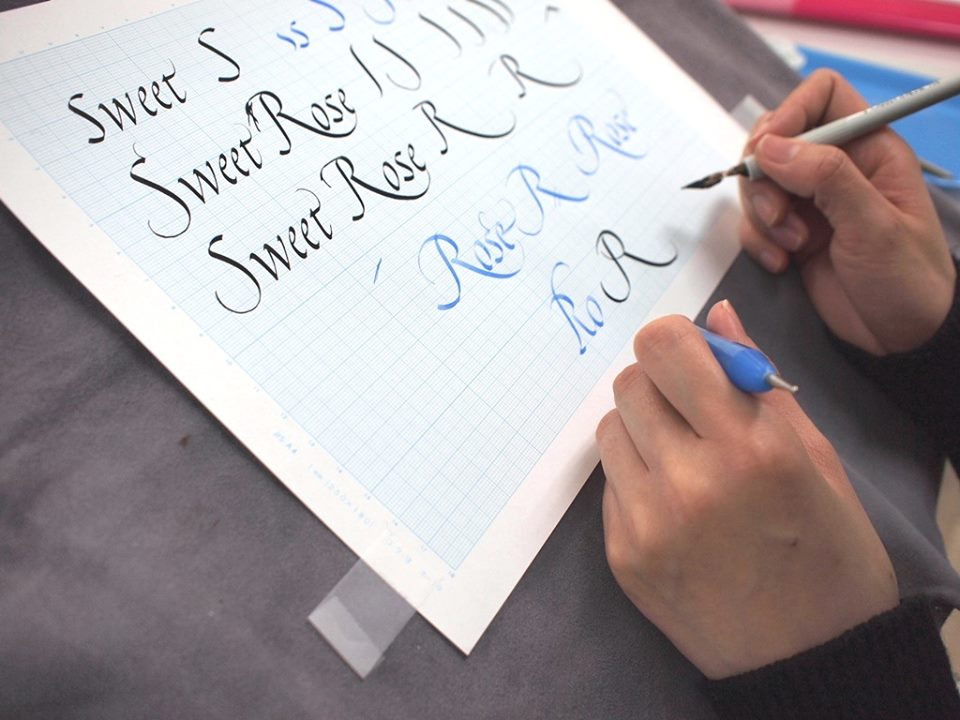 Sweet S ss S
Sweet Rose
Sweet Rose R R R
Rose R Rose
Ro R